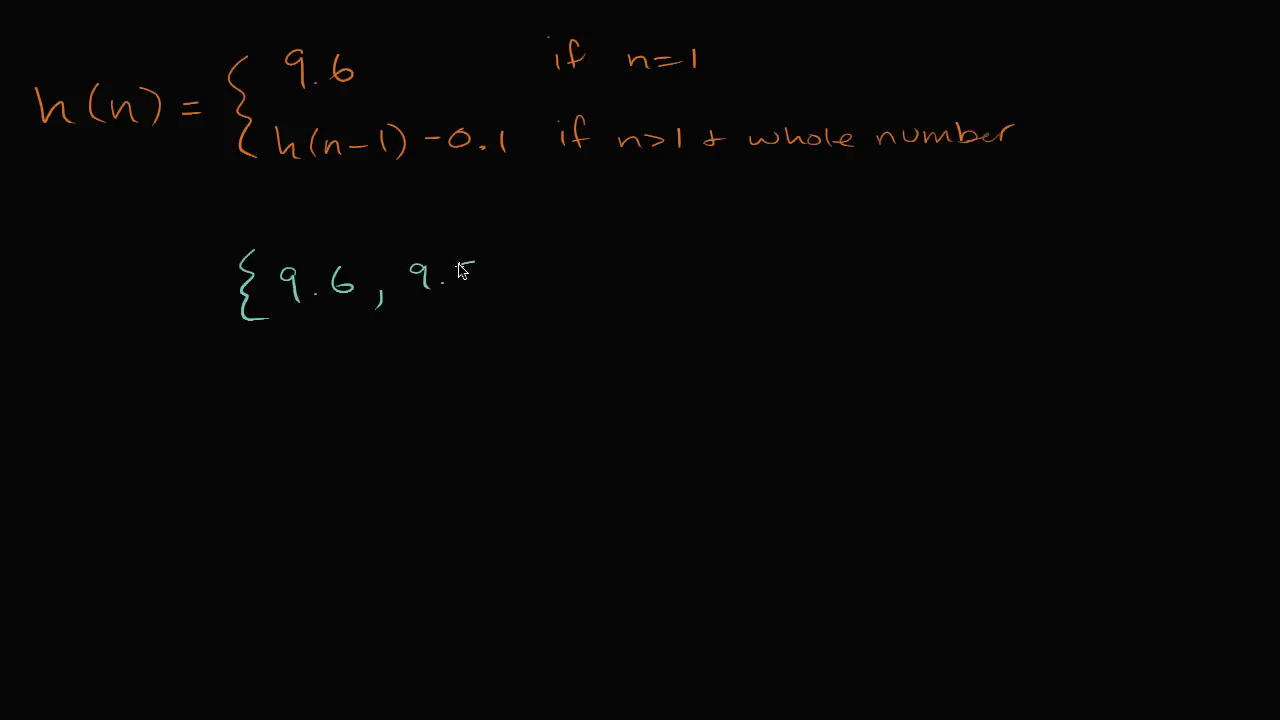 9.6 if n=1
h(n) = {
h(n-1) -0.1 if n>1 + whole number
{ 9.6 , 9.5